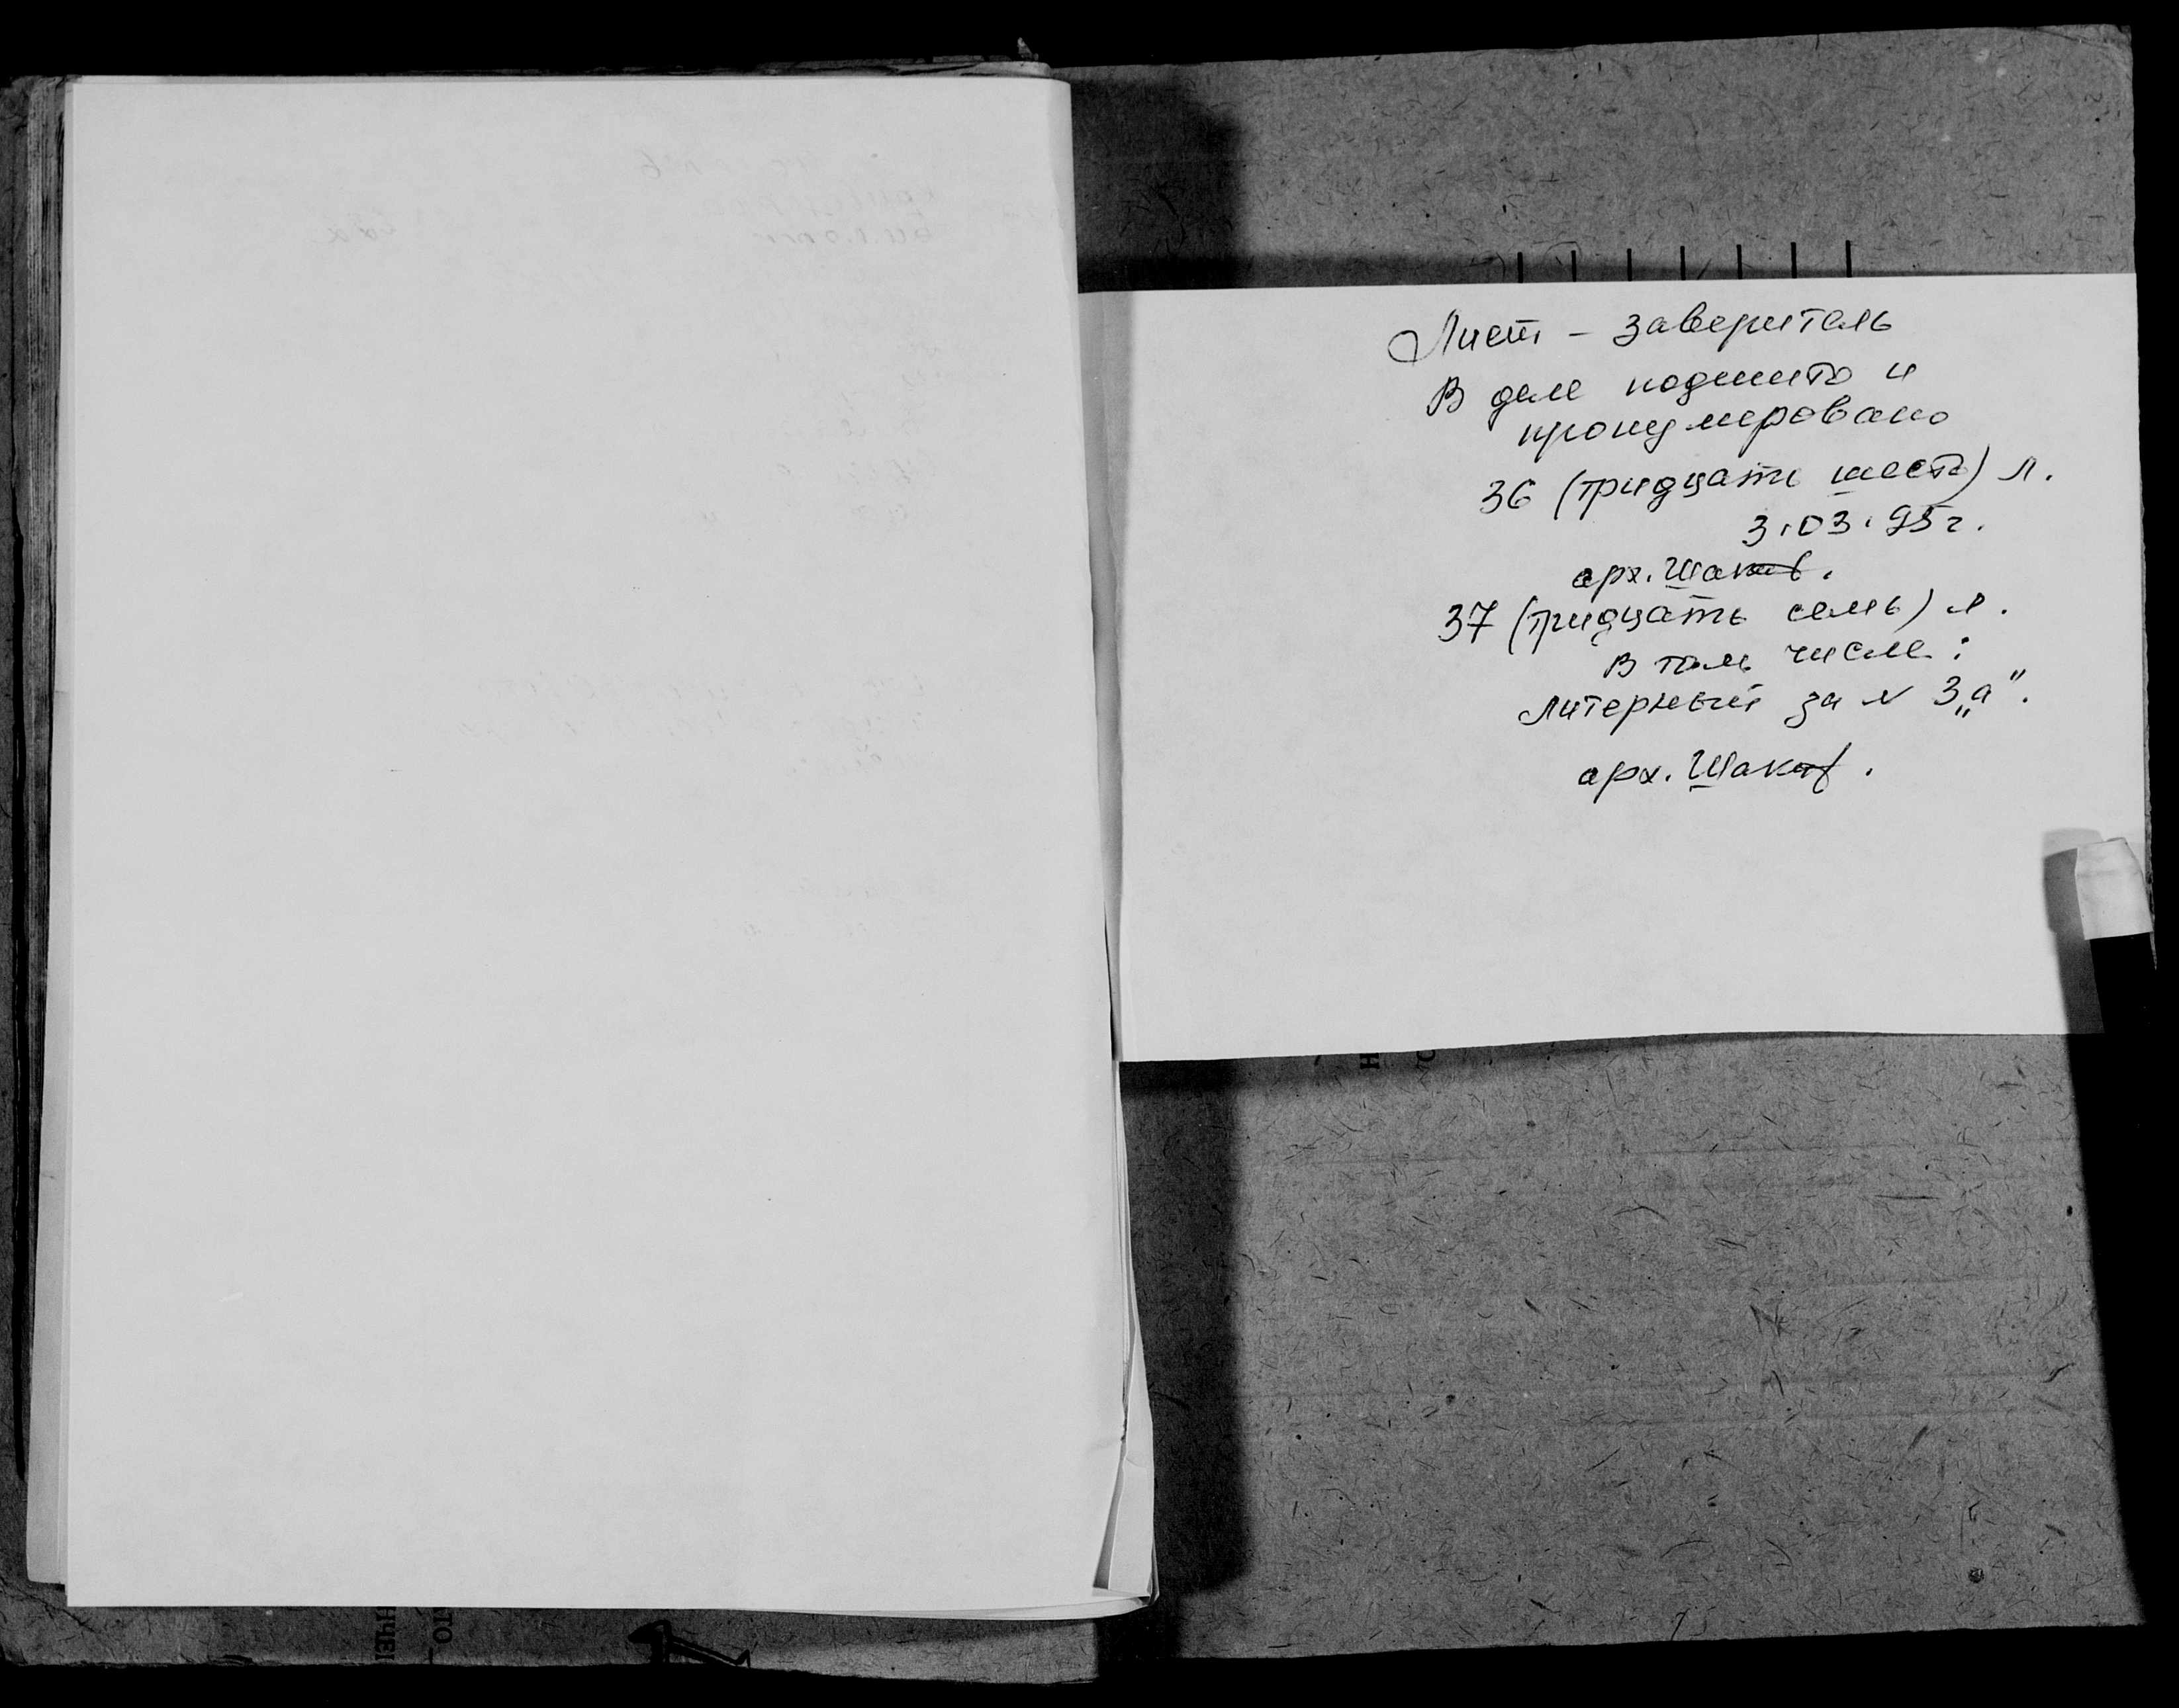 Лист - заверитель
В деле подшито и
пронумеровано
36 (тридцать шесть) л.
3.03.95 г.
арх.
37 (тридцать семь) л.
В том числе:
Литерный за N 3„а".
арх.